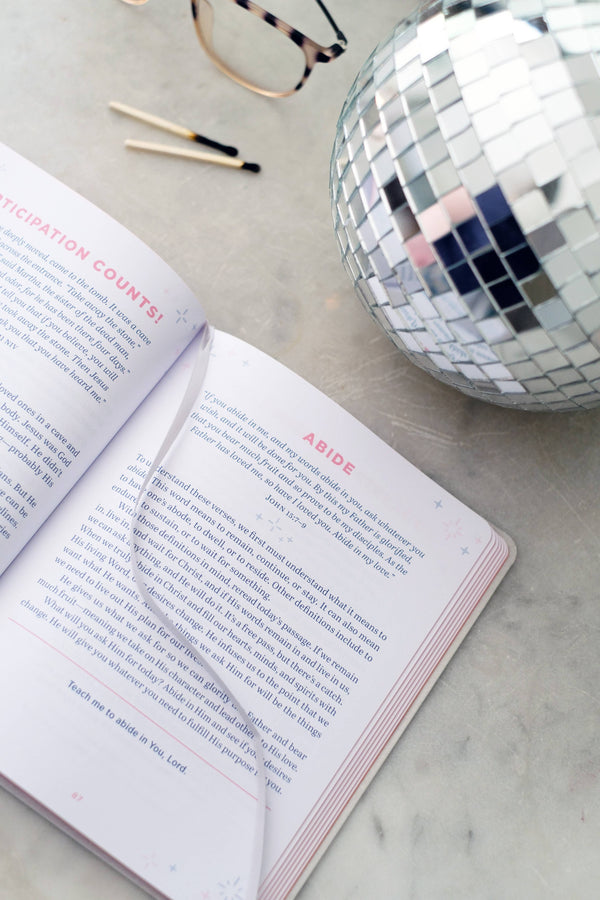 RTICIPATION COUNTS!
s deeply moved, came to the tomb. It was a cave
across the entrance. "Take away the stone,"
said Martha, the sister of the dead man,
odor, for he has been there four days."
tell you that if you believe, you will
took away the stone. Then Jesus
you that you have heard me.
NIV
loved ones in a cave and
body. Jesus was God
Himself. He didn't
—probably His
But He
can be
ABIDE
"If you abide in me, and my words abide in you, ask whatever you
wish, and it will be done for you. By this my Father is glorified,
that you bear much fruit and so prove to be my disciples. As the
Father has loved me, so have I loved you. Abide in my love."
JOHN 15:7–9
To understand these verses, we first must understand what it means to
abide. This word means to remain, continue, or stay. It can also mean
to have one's abode, to dwell, or to reside. Other definitions include to
endure, to sustain, or to wait for something.
those definitions in mind, reread today's passage. If we remain
in, live in, and wait for Christ, and if His words remain in and live in us,
we can ask anything, and He will do it. It's a free pass, but there's a catch.
When we truly abide in Christ and fill our hearts, minds, and spirits with
His living Word, desires change. He infuses us to the point that we
want what He wants. we ask Him for will be the things
we need to live out His plan for our
He gives us what we ask for so we can glorify the Father and bear
much fruit—meaning we take on His character and lead others to His love.
What will you ask Him for today? Abide in Him and see if your desires
change. He will give you whatever you need to fulfill His purpose for you.
Teach me to abide in You, Lord.
87